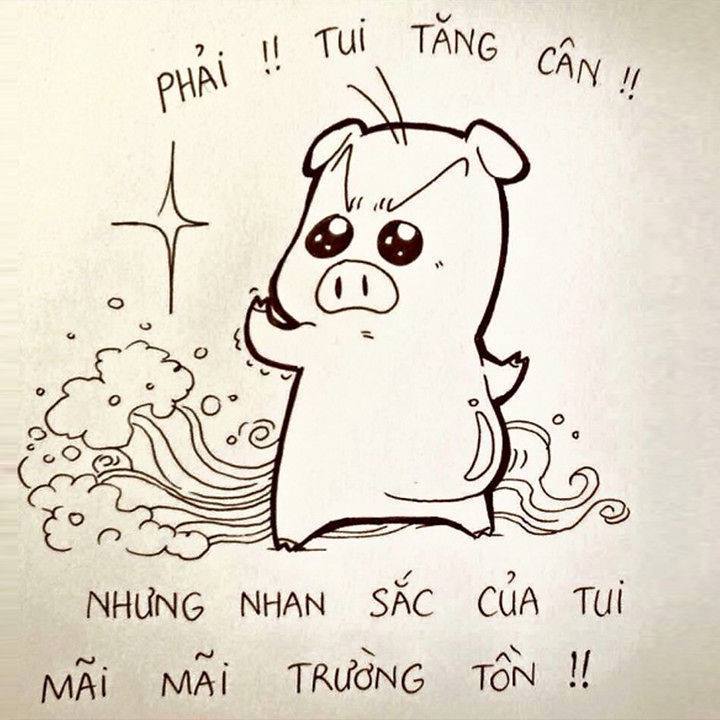 PHẢI !! TUI TĂNG CÂN !!
NHƯNG NHAN SẮC CỦA TUI
MÃI MÃI TRƯỜNG TỒN !!